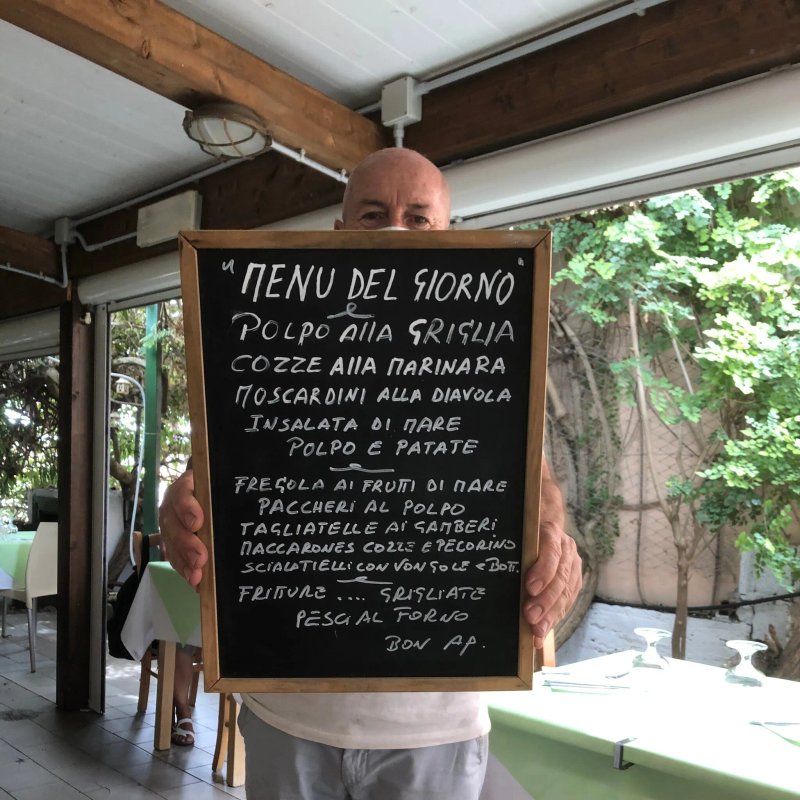 "MENU DEL GIORNO"
POLPO AllA GRIGLIA
COZZE AllA MARINARA
MOSCARDINI ALLA DIAVOLA
INSALATA DI MARE
POLPO E PATATE
FREGOLA AI FRUTTI DI MARE
PACCHERI AL POLPO
TAGLIATELLE AI GAMBERI
MACCARONES COZZE E PECORINO
SCIALATIELLI CON VONGOLE E BOTT.
FRITURE .... GRIGLIATE
PESCI AL FORNO
BON AP.